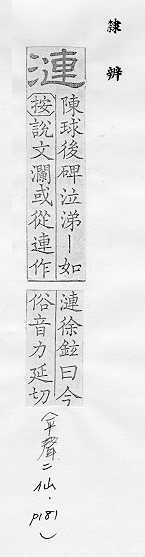 隸辨
漣
陳球後碑泣涕丨如
按說文瀾或從連作
漣徐鉉曰今
俗音力延切
(平聲二仙·p181)